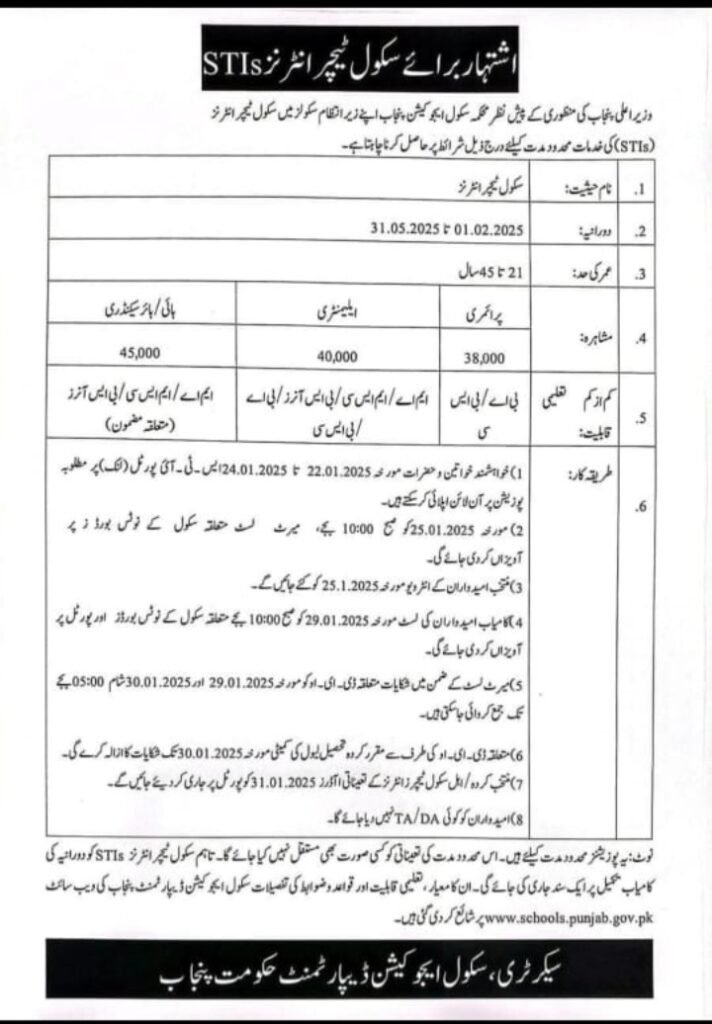 اشتہار برائے سکول ٹیچر انٹرنز STIs
وزیر اعلی پنجاب کی منظوری کے پیش نظر محکمہ سکول ایجوکیشن پنجاب اپنے زیر انتظام سکولز میں سکول ٹیچر انٹرنز
(STIs) کی خدمات محدود مدت کیلئے درج ذیل شرائط پر حاصل کرنا چاہتا ہے۔
1. نام حیثیت: سکول ٹیچر انٹرنز
2. دورانیہ: 01.02.2025 تا 31.05.2025
3. عمر کی حد: 21 تا 45 سال
4. مشاہرہ: پرائمری ایلیمنٹری ہائی/ہائر سیکنڈری
38,000 40,000 45,000
5. کم از کم تعلیمی بی اے/بی ایس ایم اے/ایم ایس سی/بی ایس آنرز/بی اے ایم اے/ایم ایس سی/بی ایس آنرز
قابلیت: سی /بی ایس سی (متعلقہ مضمون)
6. طریقہ کار: 1) خواہشمند خواتین و حضرات مورخہ 22.01.2025 تا 24.01.2025 ایس۔ٹی۔آئی پورٹل (لنک) پر مطلوبہ
پوزیشن پر آن لائن اپلائی کر سکتے ہیں۔
2) مورخہ 25.01.2025 کو صبح 10:00 بجے، میرٹ لسٹ متعلقہ سکول کے نوٹس بورڈز پر
آویزاں کر دی جائے گی۔
3) منتخب امیدواران کے انٹرویو مورخہ 25.1.2025 کو کئے جائیں گے۔
4) کامیاب امیدواران کی لسٹ مورخہ 29.01.2025 کو صبح 10:00 بجے متعلقہ سکول کے نوٹس بورڈز اور پورٹل پر
آویزاں کر دی جائے گی۔
5) میرٹ لسٹ کے ضمن میں شکایات متعلقہ ڈی۔ای۔او کو مورخہ 29.01.2025 اور 30.01.2025 شام 05:00 بجے
تک جمع کروائی جا سکتی ہیں۔
6) متعلقہ ڈی۔ای۔او کی طرف سے مقرر کردہ تحصیل لیول کی کمیٹی مورخہ 30.01.2025 تک شکایات کا ازالہ کرے گی۔
7) منتخب کردہ/اہل سکول ٹیچرز انٹرنز کے تعیناتی آرڈرز 31.01.2025 کو پورٹل پر جاری کر دیئے جائیں گے۔
8) امیدواران کو کوئی TA/DA نہیں دیا جائے گا۔
نوٹ: یہ پوزیشنز محدود مدت کیلئے ہیں۔ اس محدود مدت کی تعیناتی کو کسی صورت بھی مستقل نہیں کیا جائے گا۔ تاہم سکول ٹیچر انٹرنز STIs کو دورانیہ کی
کامیاب تکمیل پر ایک سند جاری کی جائے گی۔ ان کا معیار، تعلیمی قابلیت اور قواعد و ضوابط کی تفصیلات سکول ایجوکیشن ڈیپارٹمنٹ پنجاب کی ویب سائٹ
www.schools.punjab.gov.pk پر شائع کر دی گئی ہیں۔
سیکرٹری، سکول ایجوکیشن ڈیپارٹمنٹ حکومت پنجاب